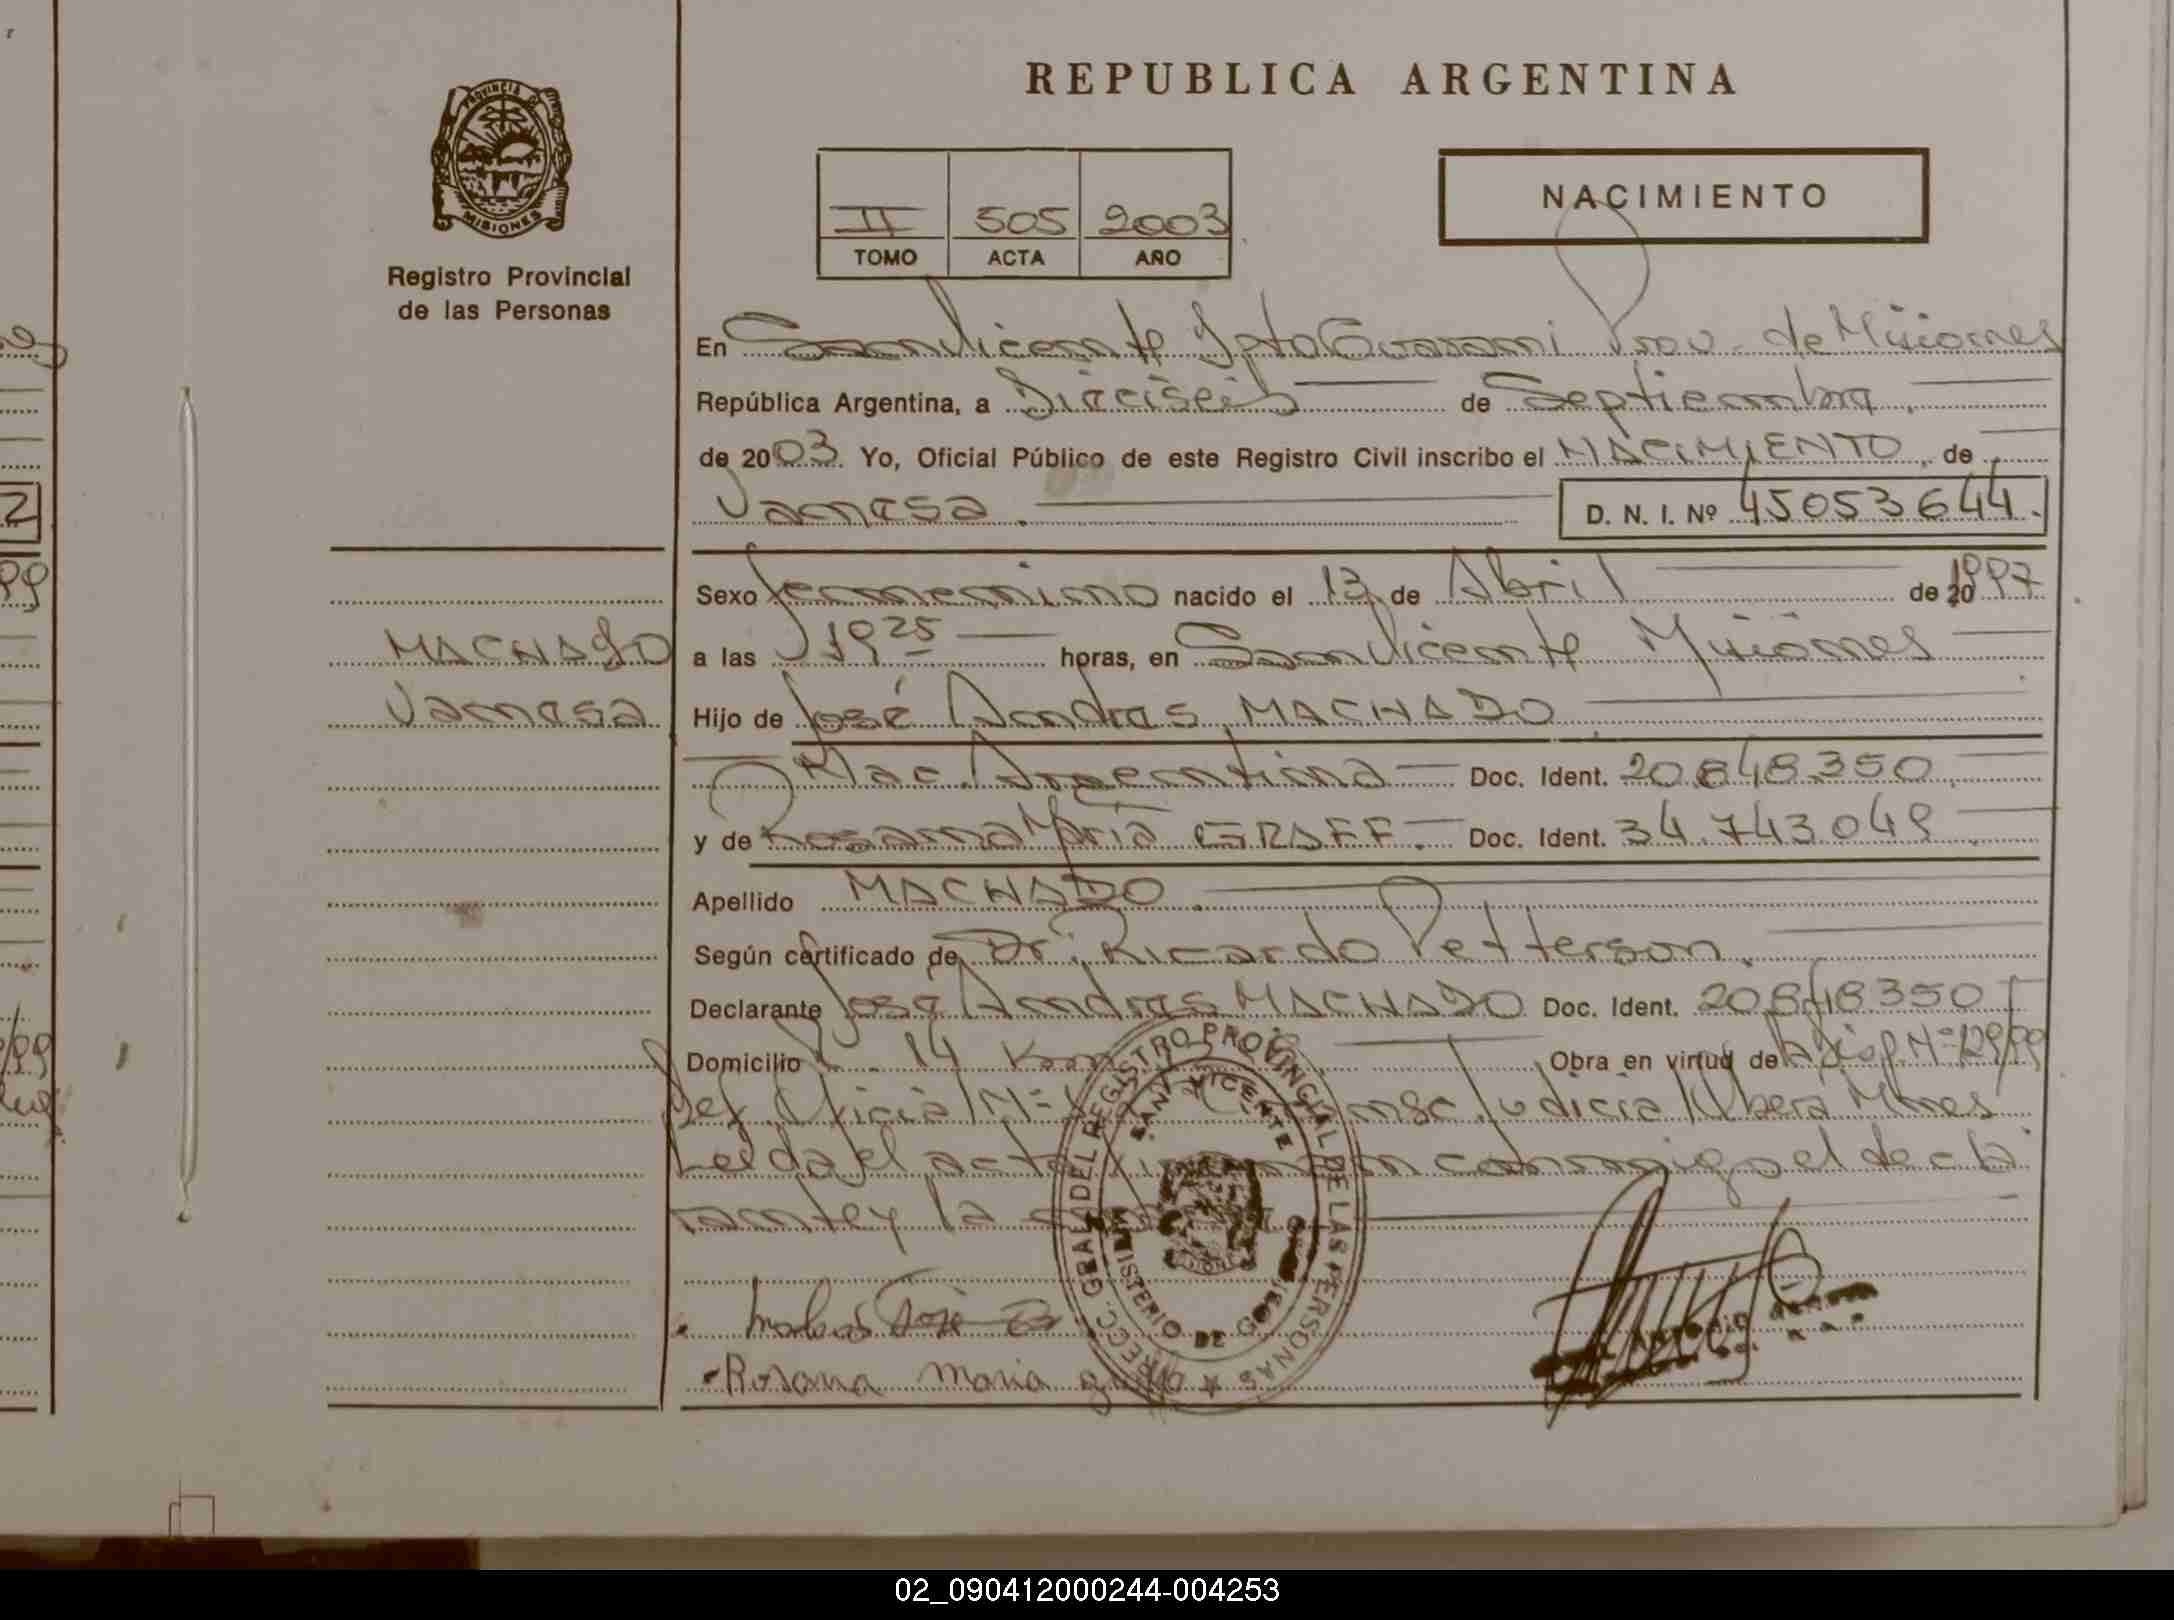 REPUBLICA ARGENTINA
PROVINCIA DE
MISIONES
Registro Provincial
de las Personas
II 505 2003
TOMO ACTA AÑO
NACIMIENTO
En San Vicente Dpto Guarani Prov. de Misiones
República Argentina, a Dieciseis de Septiembre
de 2003 Yo, Oficial Público de este Registro Civil inscribo el NACIMIENTO, de
Vanesa.
D. N. I. Nº 45053644.
Sexo femenino nacido el 13 de Abril de 20 1997
MACHADO
Vanesa
a las 19 25 horas, en San Vicente Misiones
Hijo de José Andres MACHADO
Nac. Argentina Doc. Ident. 20.848.350
y de Rosana Maria GRAFF. Doc. Ident. 34.743.049
Apellido MACHADO
Según certificado de Dr. Ricardo Petterson.
Declarante José Andres MACHADO Doc. Ident. 20848350
Domicilio 14 Km Obra en virtud de la Disp. Nº 129/99
Def. Oficial Nº Judicial Obera Mnes
Leida el acta conmigo el decla
rante y la
DIRECC. GRAL. DEL REGISTRO PROVINCIAL DE LAS PERSONAS
SAN VICENTE
MINISTERIO DE GOBIERNO
Rosana Maria
02_090412000244-004253